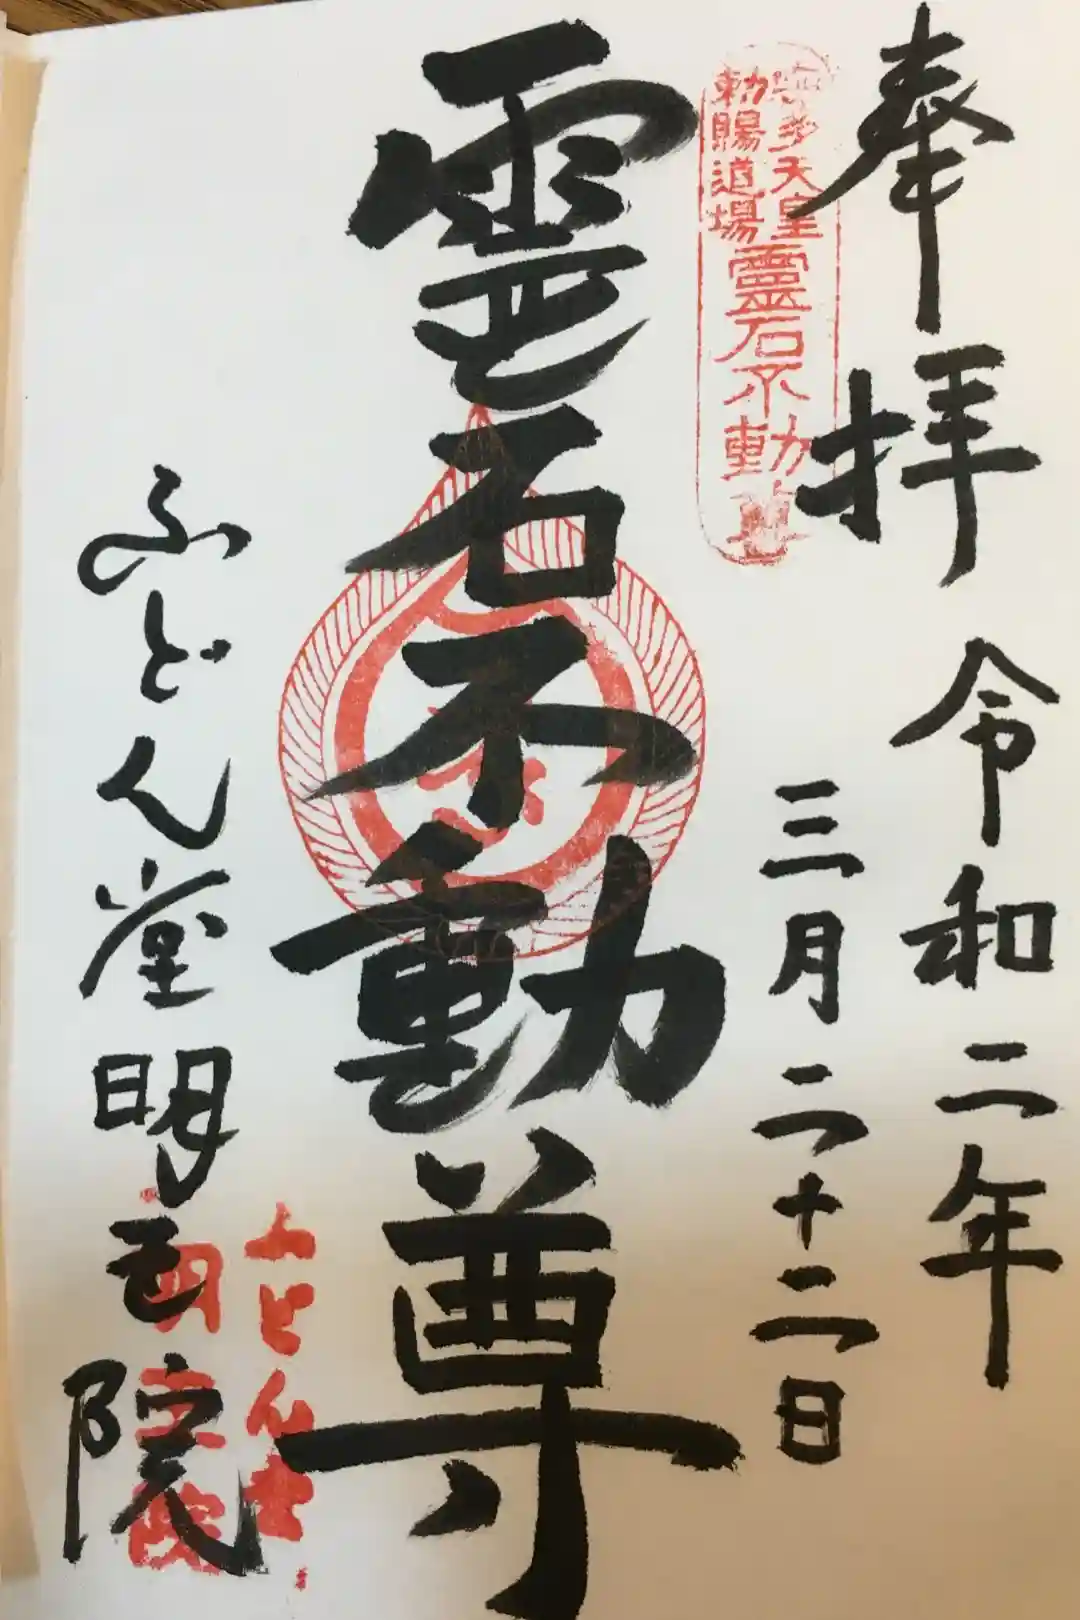 奉拝 令和二年
三月二十二日
宇多天皇
勅賜道場
靈石不動尊
霊石不動尊
ふどん堂明王院
ふどん堂
明王院